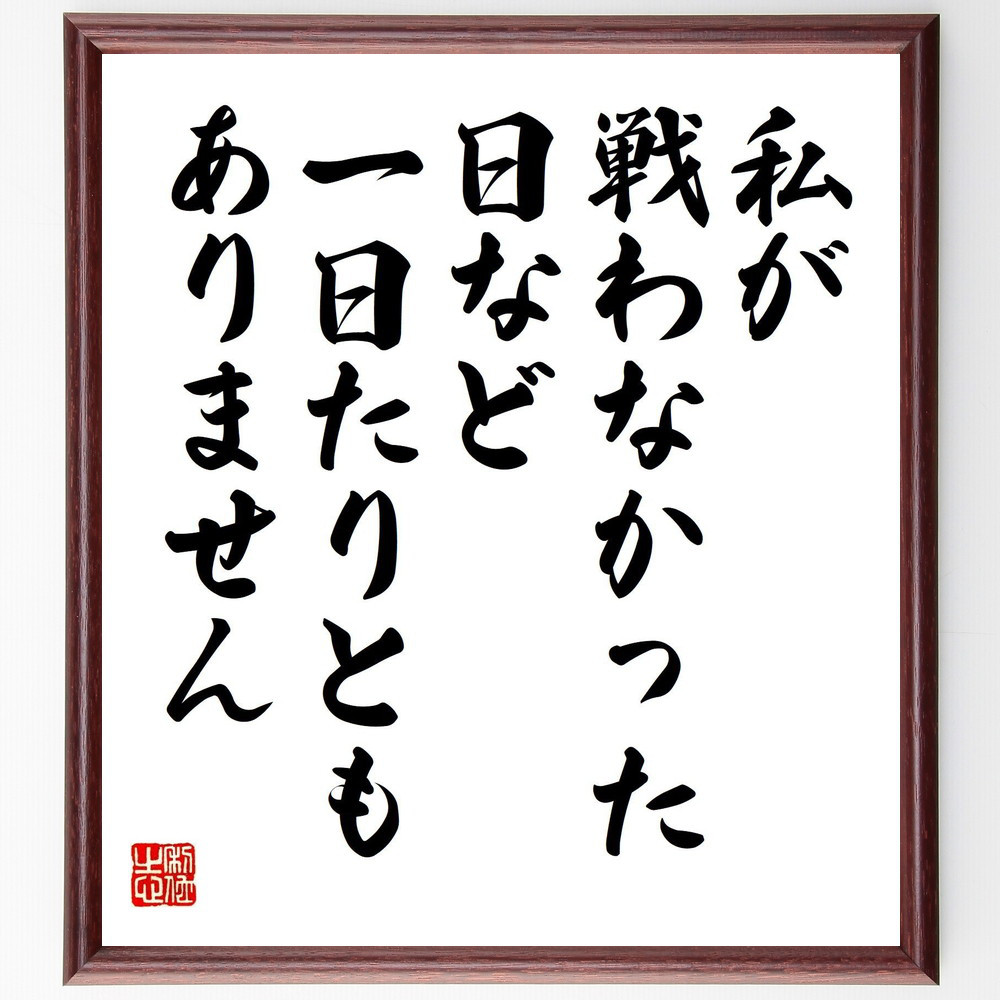 私が
戦わなかった
日など
一日たりとも
ありません